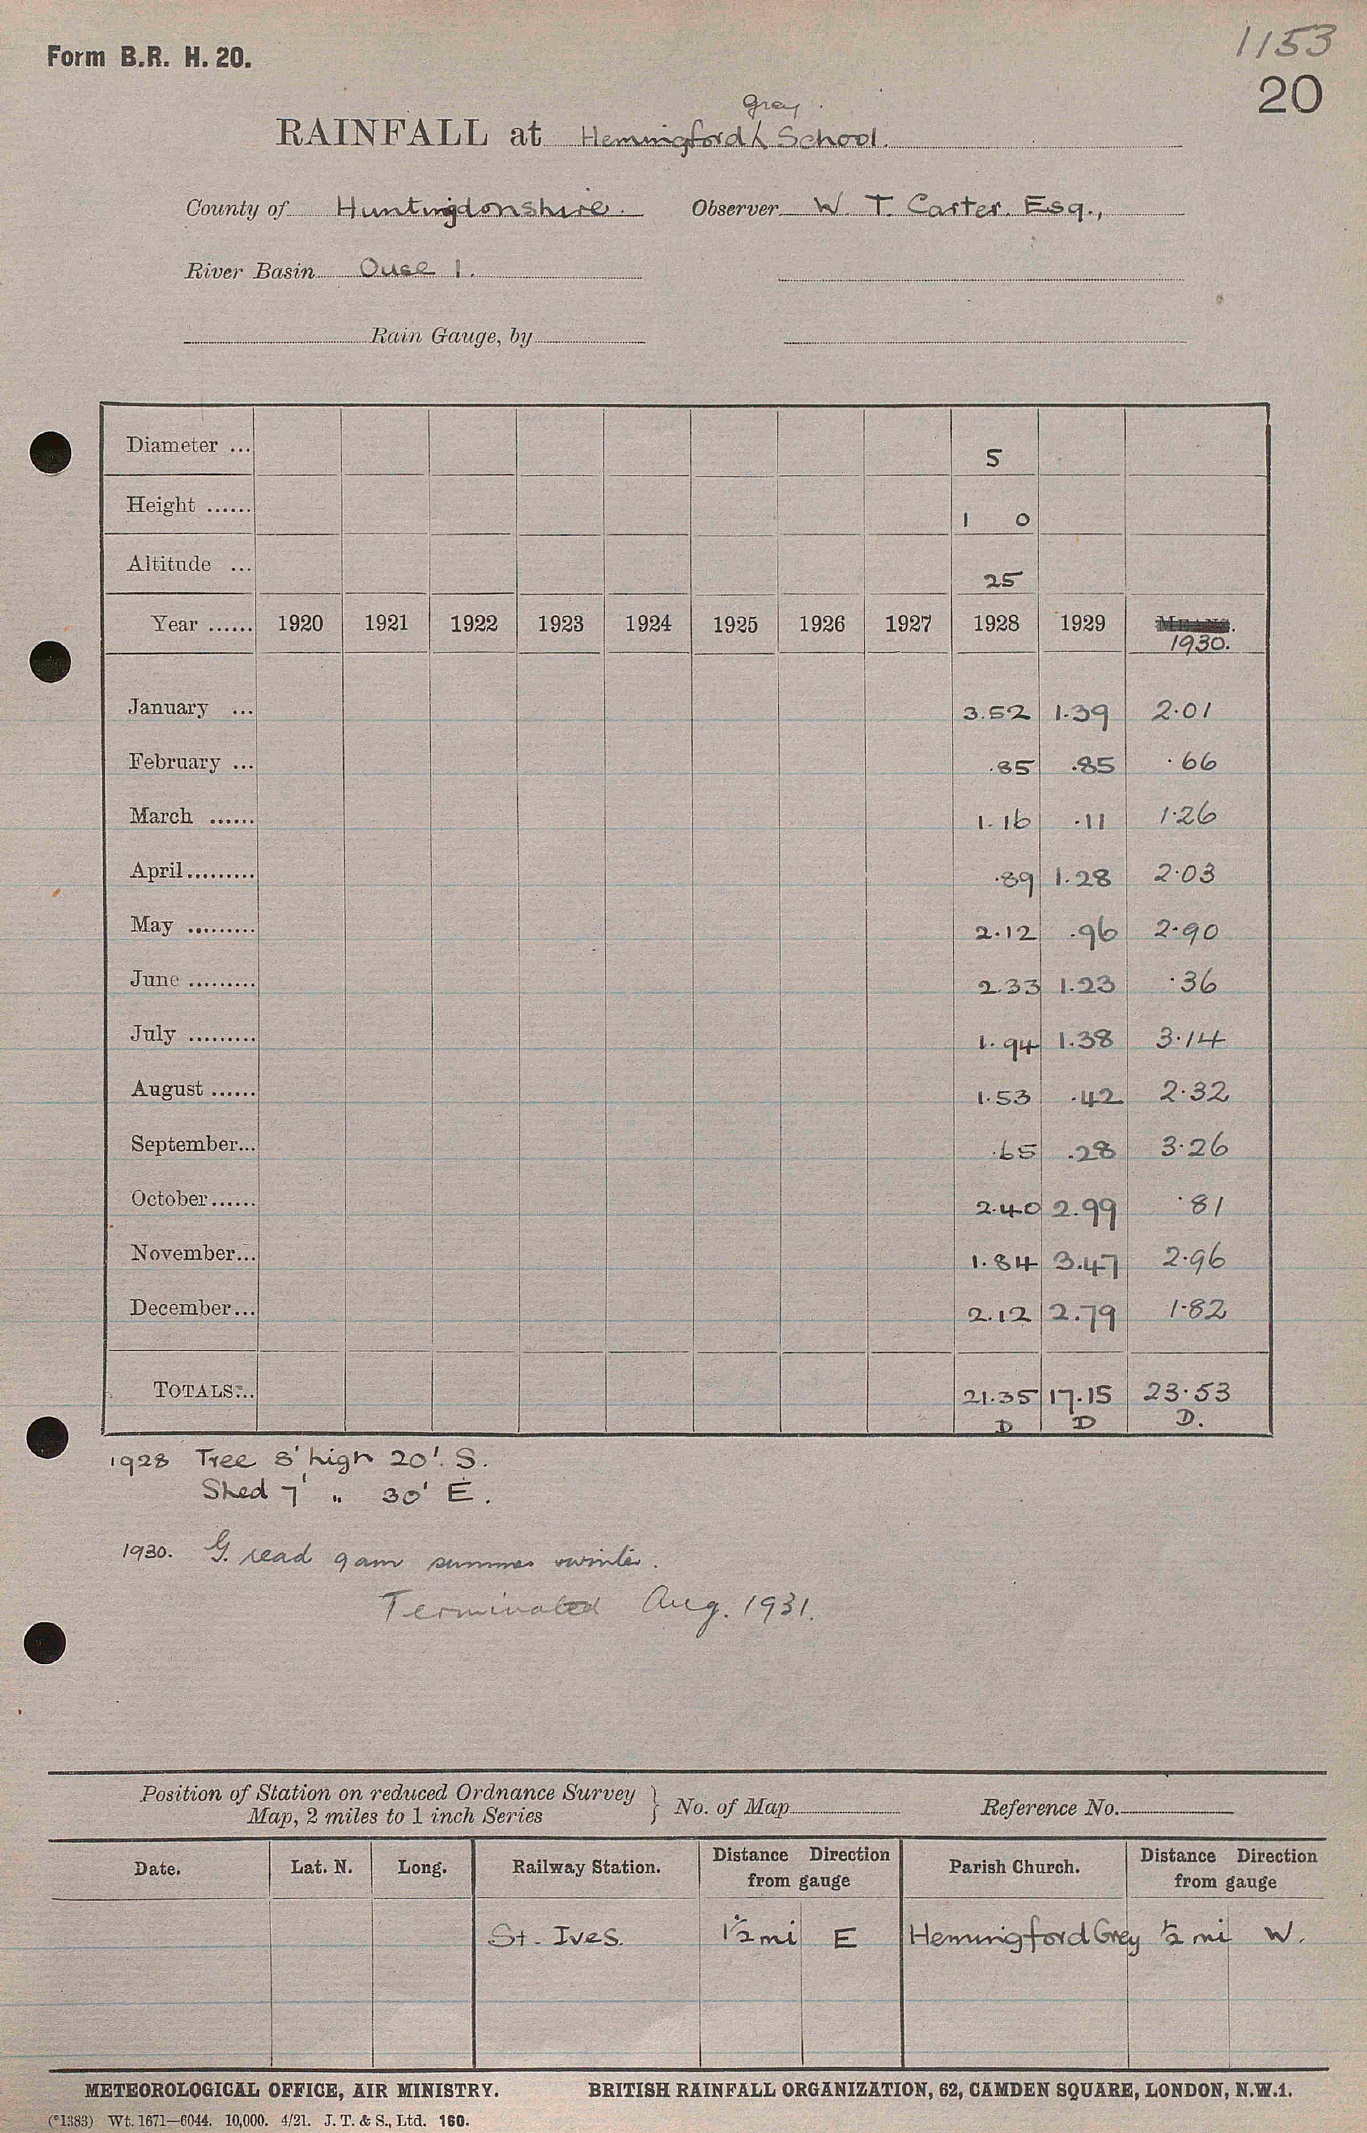 1153
Form B.R. H. 20.
20
Grey.
RAINFALL at Hemmingford ⁁ School.
County of Huntingdonshire. Observer W. T. Carter. Esq.,
River Basin Ouse 1.
Rain Gauge, by
Diameter ... 5
Height ...... 1 0
Altitude ... 25
Year ...... 1920 1921 1922 1923 1924 1925 1926 1927 1928 1929 MEANS.
1930.
January ... 3.52 1.39 2.01
February ... .85 .85 .66
March ...... 1.16 .11 1.26
April ......... .89 1.28 2.03
May ......... 2.12 .96 2.90
June ......... 2.33 1.23 .36
July ......... 1.94 1.38 3.14
August ...... 1.53 .42 2.32
September... .65 .28 3.26
October ...... 2.40 2.99 .81
November... 1.84 3.47 2.96
December... 2.12 2.79 1.82
TOTALS... 21.35 17.15 23.53
D D D.
1928 Tree 8' high 20'. S.
Shed 7' " 30' E.
1930. G. read 9 am summer & winter.
Terminated Aug. 1931.
Position of Station on reduced Ordnance Survey
Map, 2 miles to 1 inch Series } No. of Map Reference No.
Date. Lat. N. Long. Railway Station. Distance Direction from gauge Parish Church. Distance Direction from gauge
St. Ives. 1½ mi E Hemmingford Grey ½ mi W.
METEOROLOGICAL OFFICE, AIR MINISTRY. BRITISH RAINFALL ORGANIZATION, 62, CAMDEN SQUARE, LONDON, N.W.1.
(*1383) Wt. 1671—6044. 10,000. 4/21. J. T. & S., Ltd. 160.